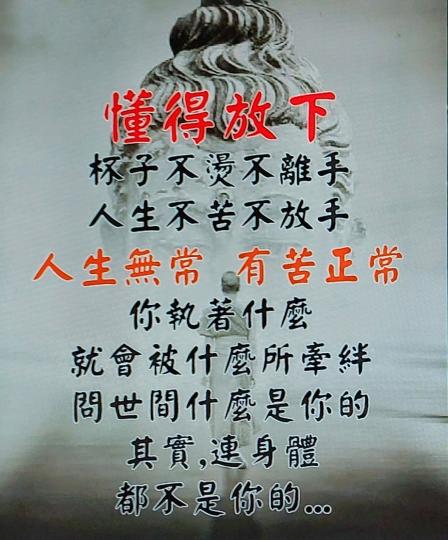 懂得放下
杯子不燙不離手
人生不苦不放手
人生無常 有苦正常
你執著什麼
就會被什麼所牽絆
問世間什麼是你的
其實,連身體
都不是你的...